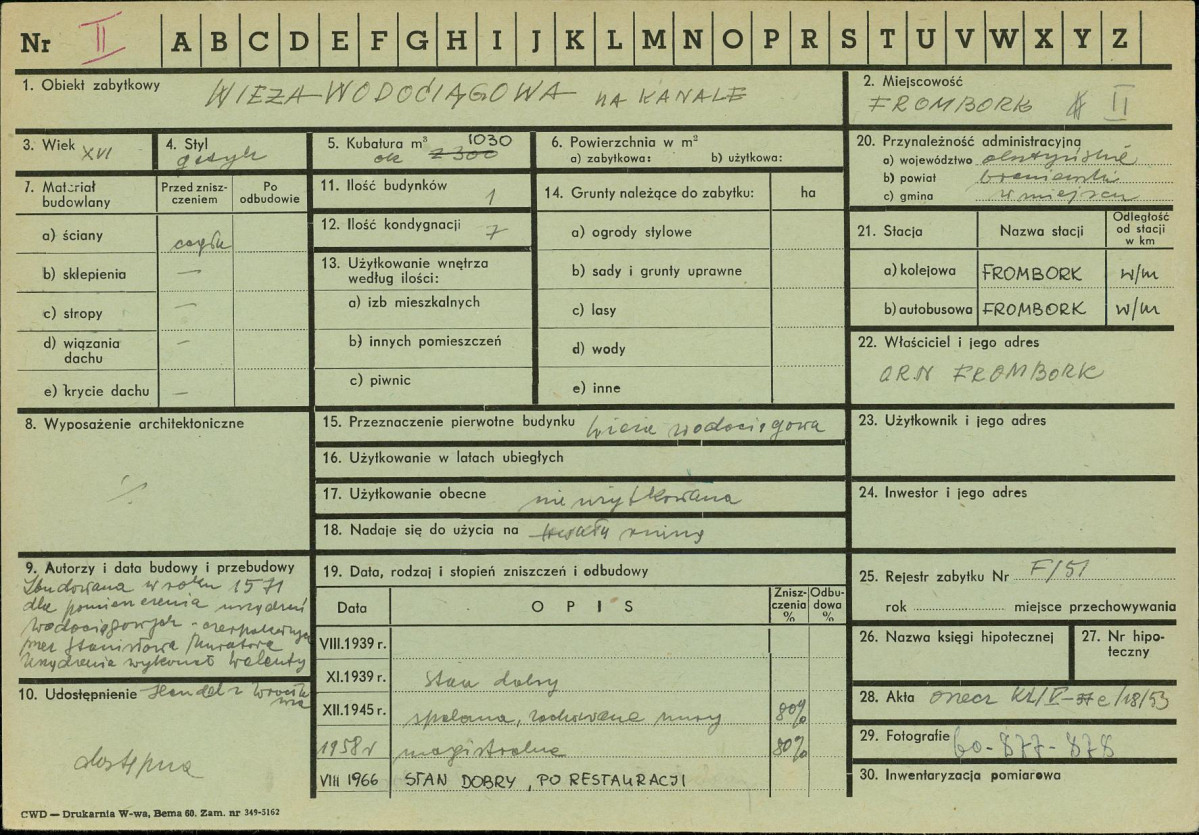 Nr II A B C D E F G H I J K L M N O P R S T U V W X Y Z
1. Obiekt zabytkowy WIEŻA WODOCIĄGOWA NA KANALE
2. Miejscowość
FROMBORK II
3. Wiek XVI
4. Styl
gotyk
5. Kubatura m³ 1030
ok 2300
6. Powierzchnia w m²
a) zabytkowa: b) użytkowa:
20. Przynależność administracyjna
a) województwo olsztyńskie
b) powiat braniewski
c) gmina w miejscu
7. Materiał budowlany
Przed zniszczeniem
Po odbudowie
a) ściany cegła
b) sklepienia —
c) stropy —
d) wiązania dachu —
e) krycie dachu —
11. Ilość budynków 1
12. Ilość kondygnacji 7
13. Użytkowanie wnętrza
według ilości:
a) izb mieszkalnych
b) innych pomieszczeń
c) piwnic
14. Grunty należące do zabytku: ha
a) ogrody stylowe
b) sady i grunty uprawne
c) lasy
d) wody
e) inne
21. Stacja Nazwa stacji Odległość od stacji w km
a) kolejowa FROMBORK w/m
b) autobusowa FROMBORK w/m
22. Właściciel i jego adres
FROMBORK
8. Wyposażenie architektoniczne
15. Przeznaczenie pierwotne budynku wieża wodociągowa
16. Użytkowanie w latach ubiegłych
17. Użytkowanie obecne nie użytkowana
18. Nadaje się do użycia na
23. Użytkownik i jego adres
24. Inwestor i jego adres
9. Autorzy i data budowy i przebudowy
Zbudowana w roku 1571
dla pomieszczenia urządzeń
wodociągowych
przez Stanisława muratora
Urządzenia wykonał Walenty
Hendel z Wrocławia
10. Udostępnienie
dostępna
19. Data, rodzaj i stopień zniszczeń i odbudowy
Data OPIS Zniszczenia % Odbudowa %
VIII.1939 r.
XI.1939 r. stan dobry
XII.1945 r. spalona, zachowane mury 80%
1958 r 80%
VIII 1966 STAN DOBRY, PO RESTAURACJI
25. Rejestr zabytku Nr F/51
rok miejsce przechowywania
26. Nazwa księgi hipotecznej
27. Nr hipoteczny
28. Akta /18/53
29. Fotografie 60-877-878
30. Inwentaryzacja pomiarowa
CWD — Drukarnia W-wa, Bema 60. Zam. nr 349-5162